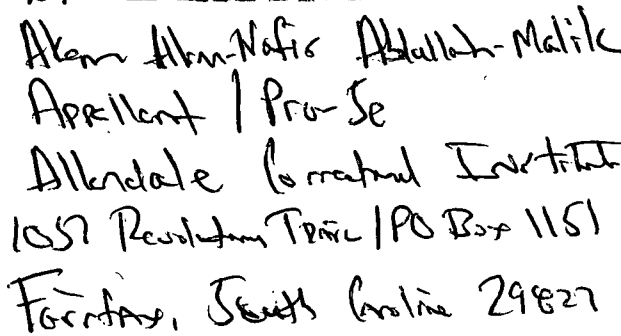 Akem Alim-Nafis Abdullah-Malik
Appellant | Pro-Se
Allendale Correctional Institut
1057 Revolutionary Trail | PO Box 1151
Fairfax, South Carolina 29827